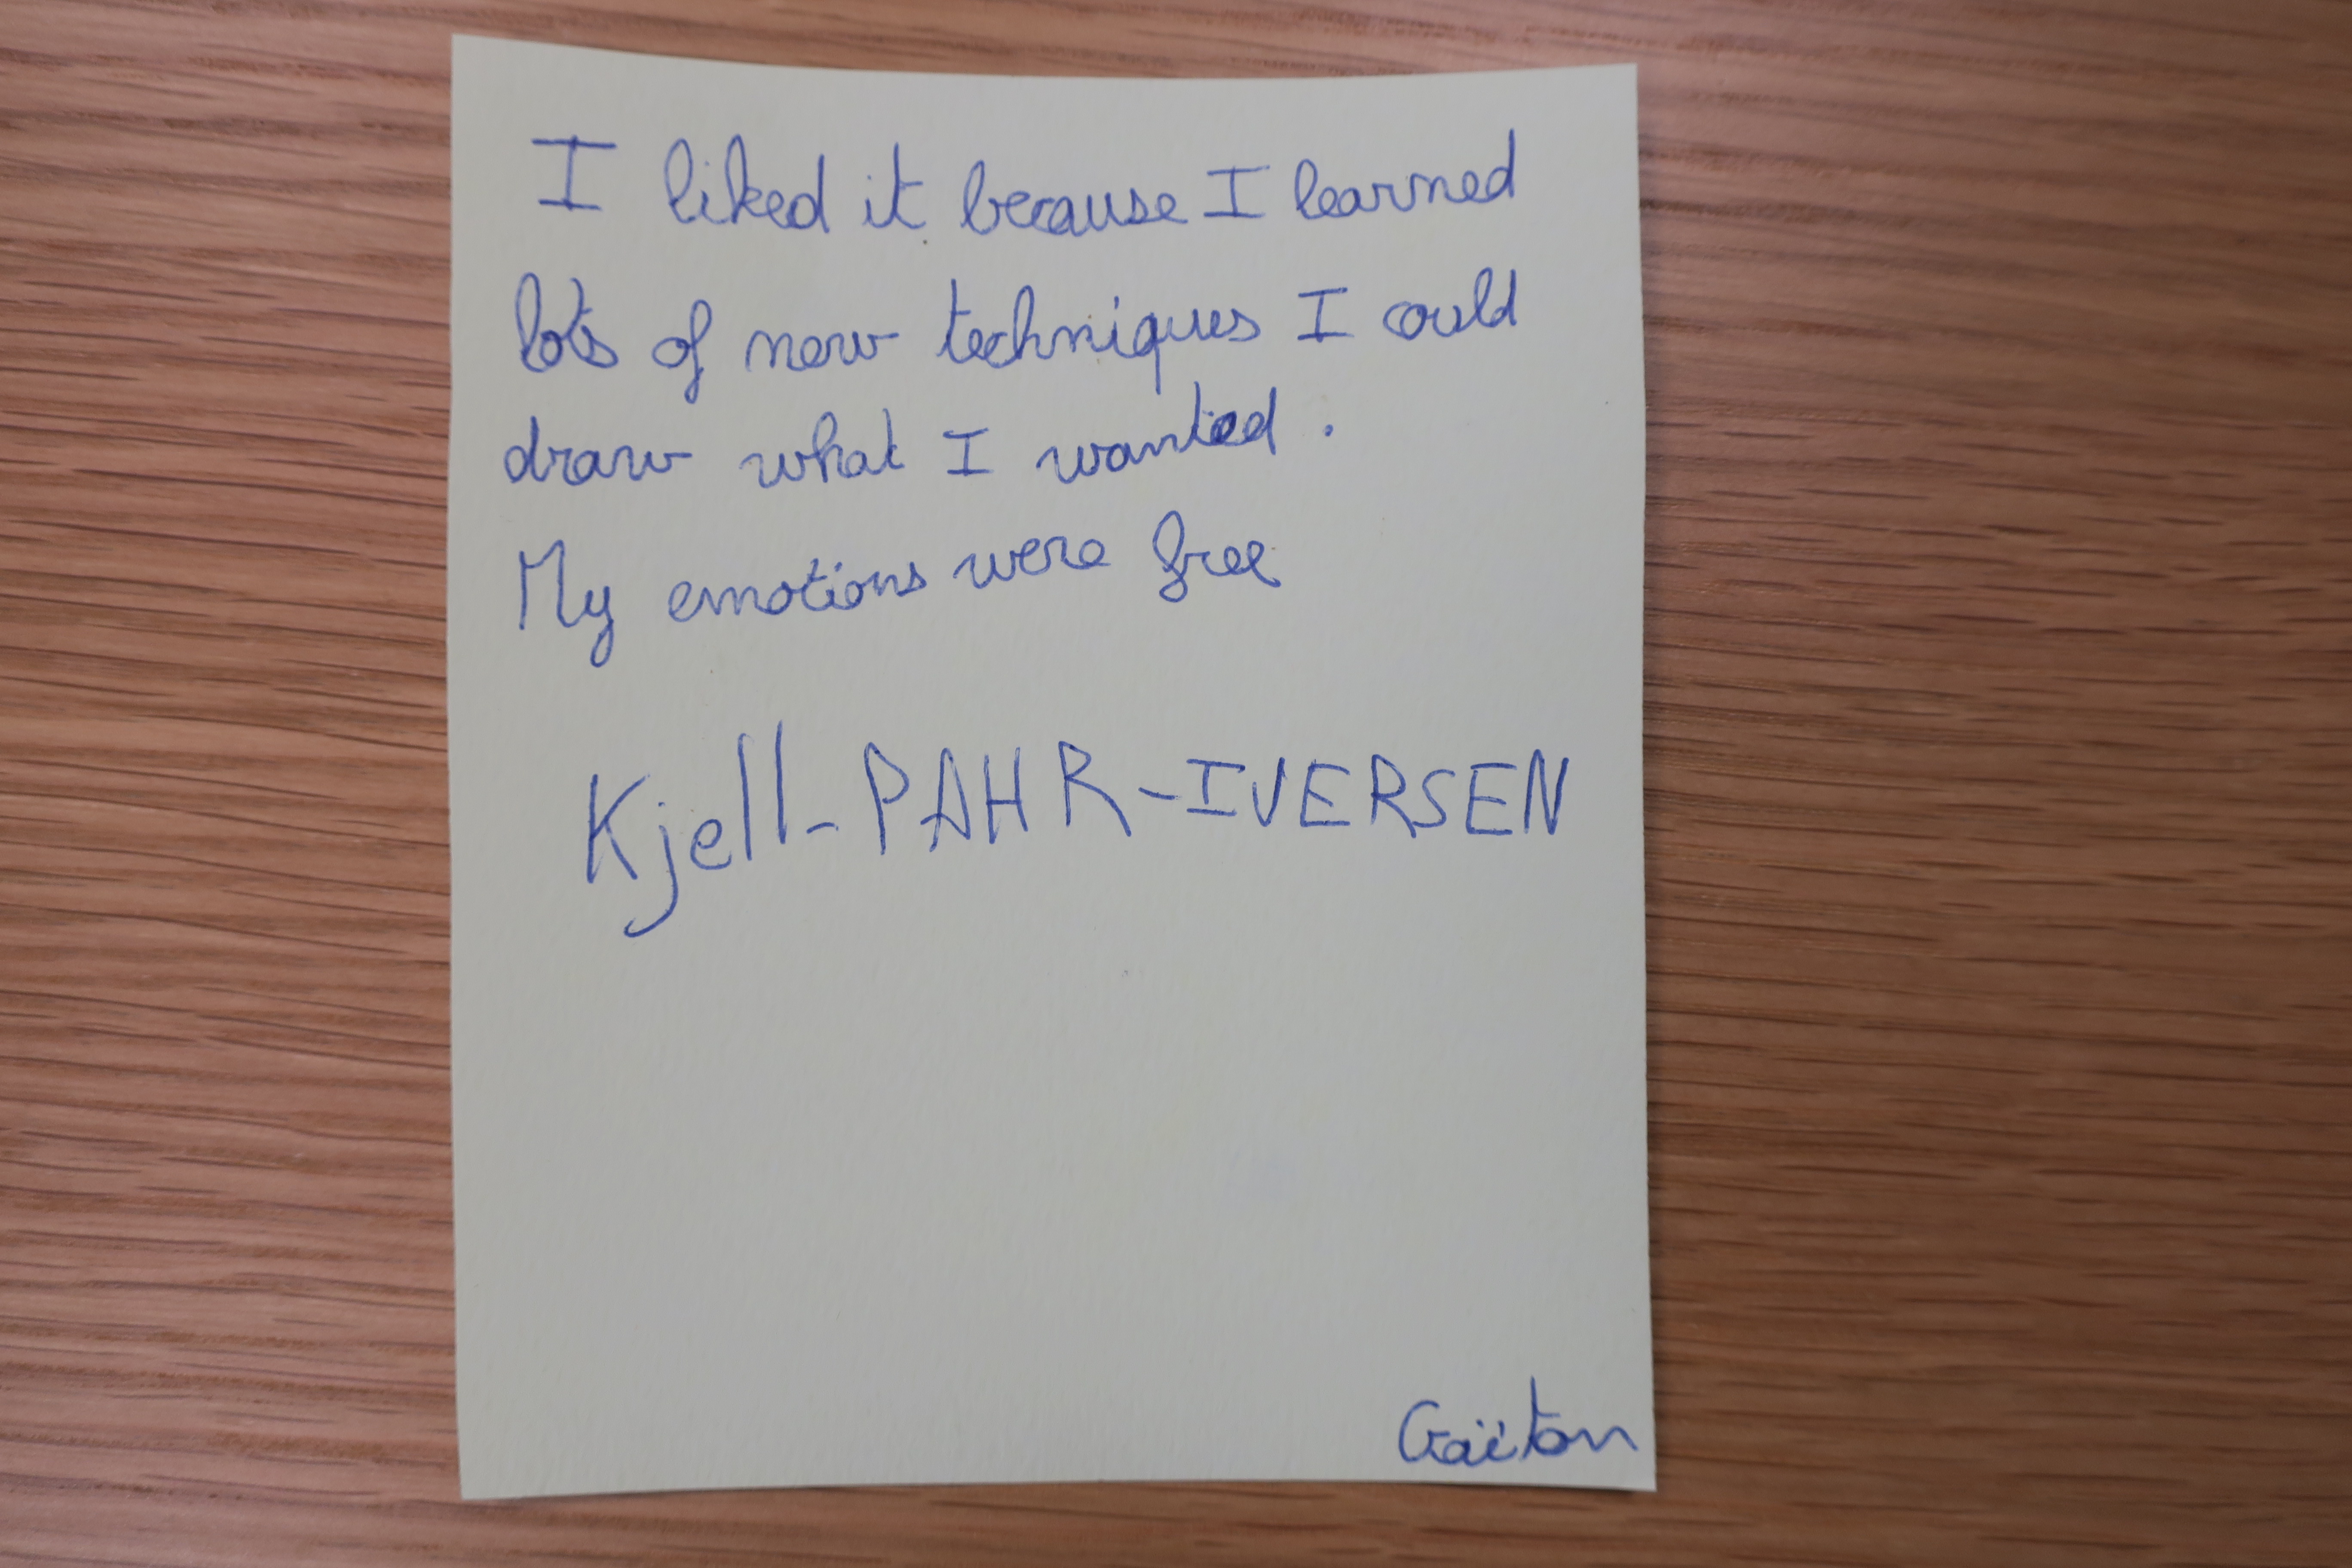 I liked it because I learned
lots of new techniques I could
draw what I wanted.
My emotions were free
Kjell-PAHR-IVERSEN
Gaëtan